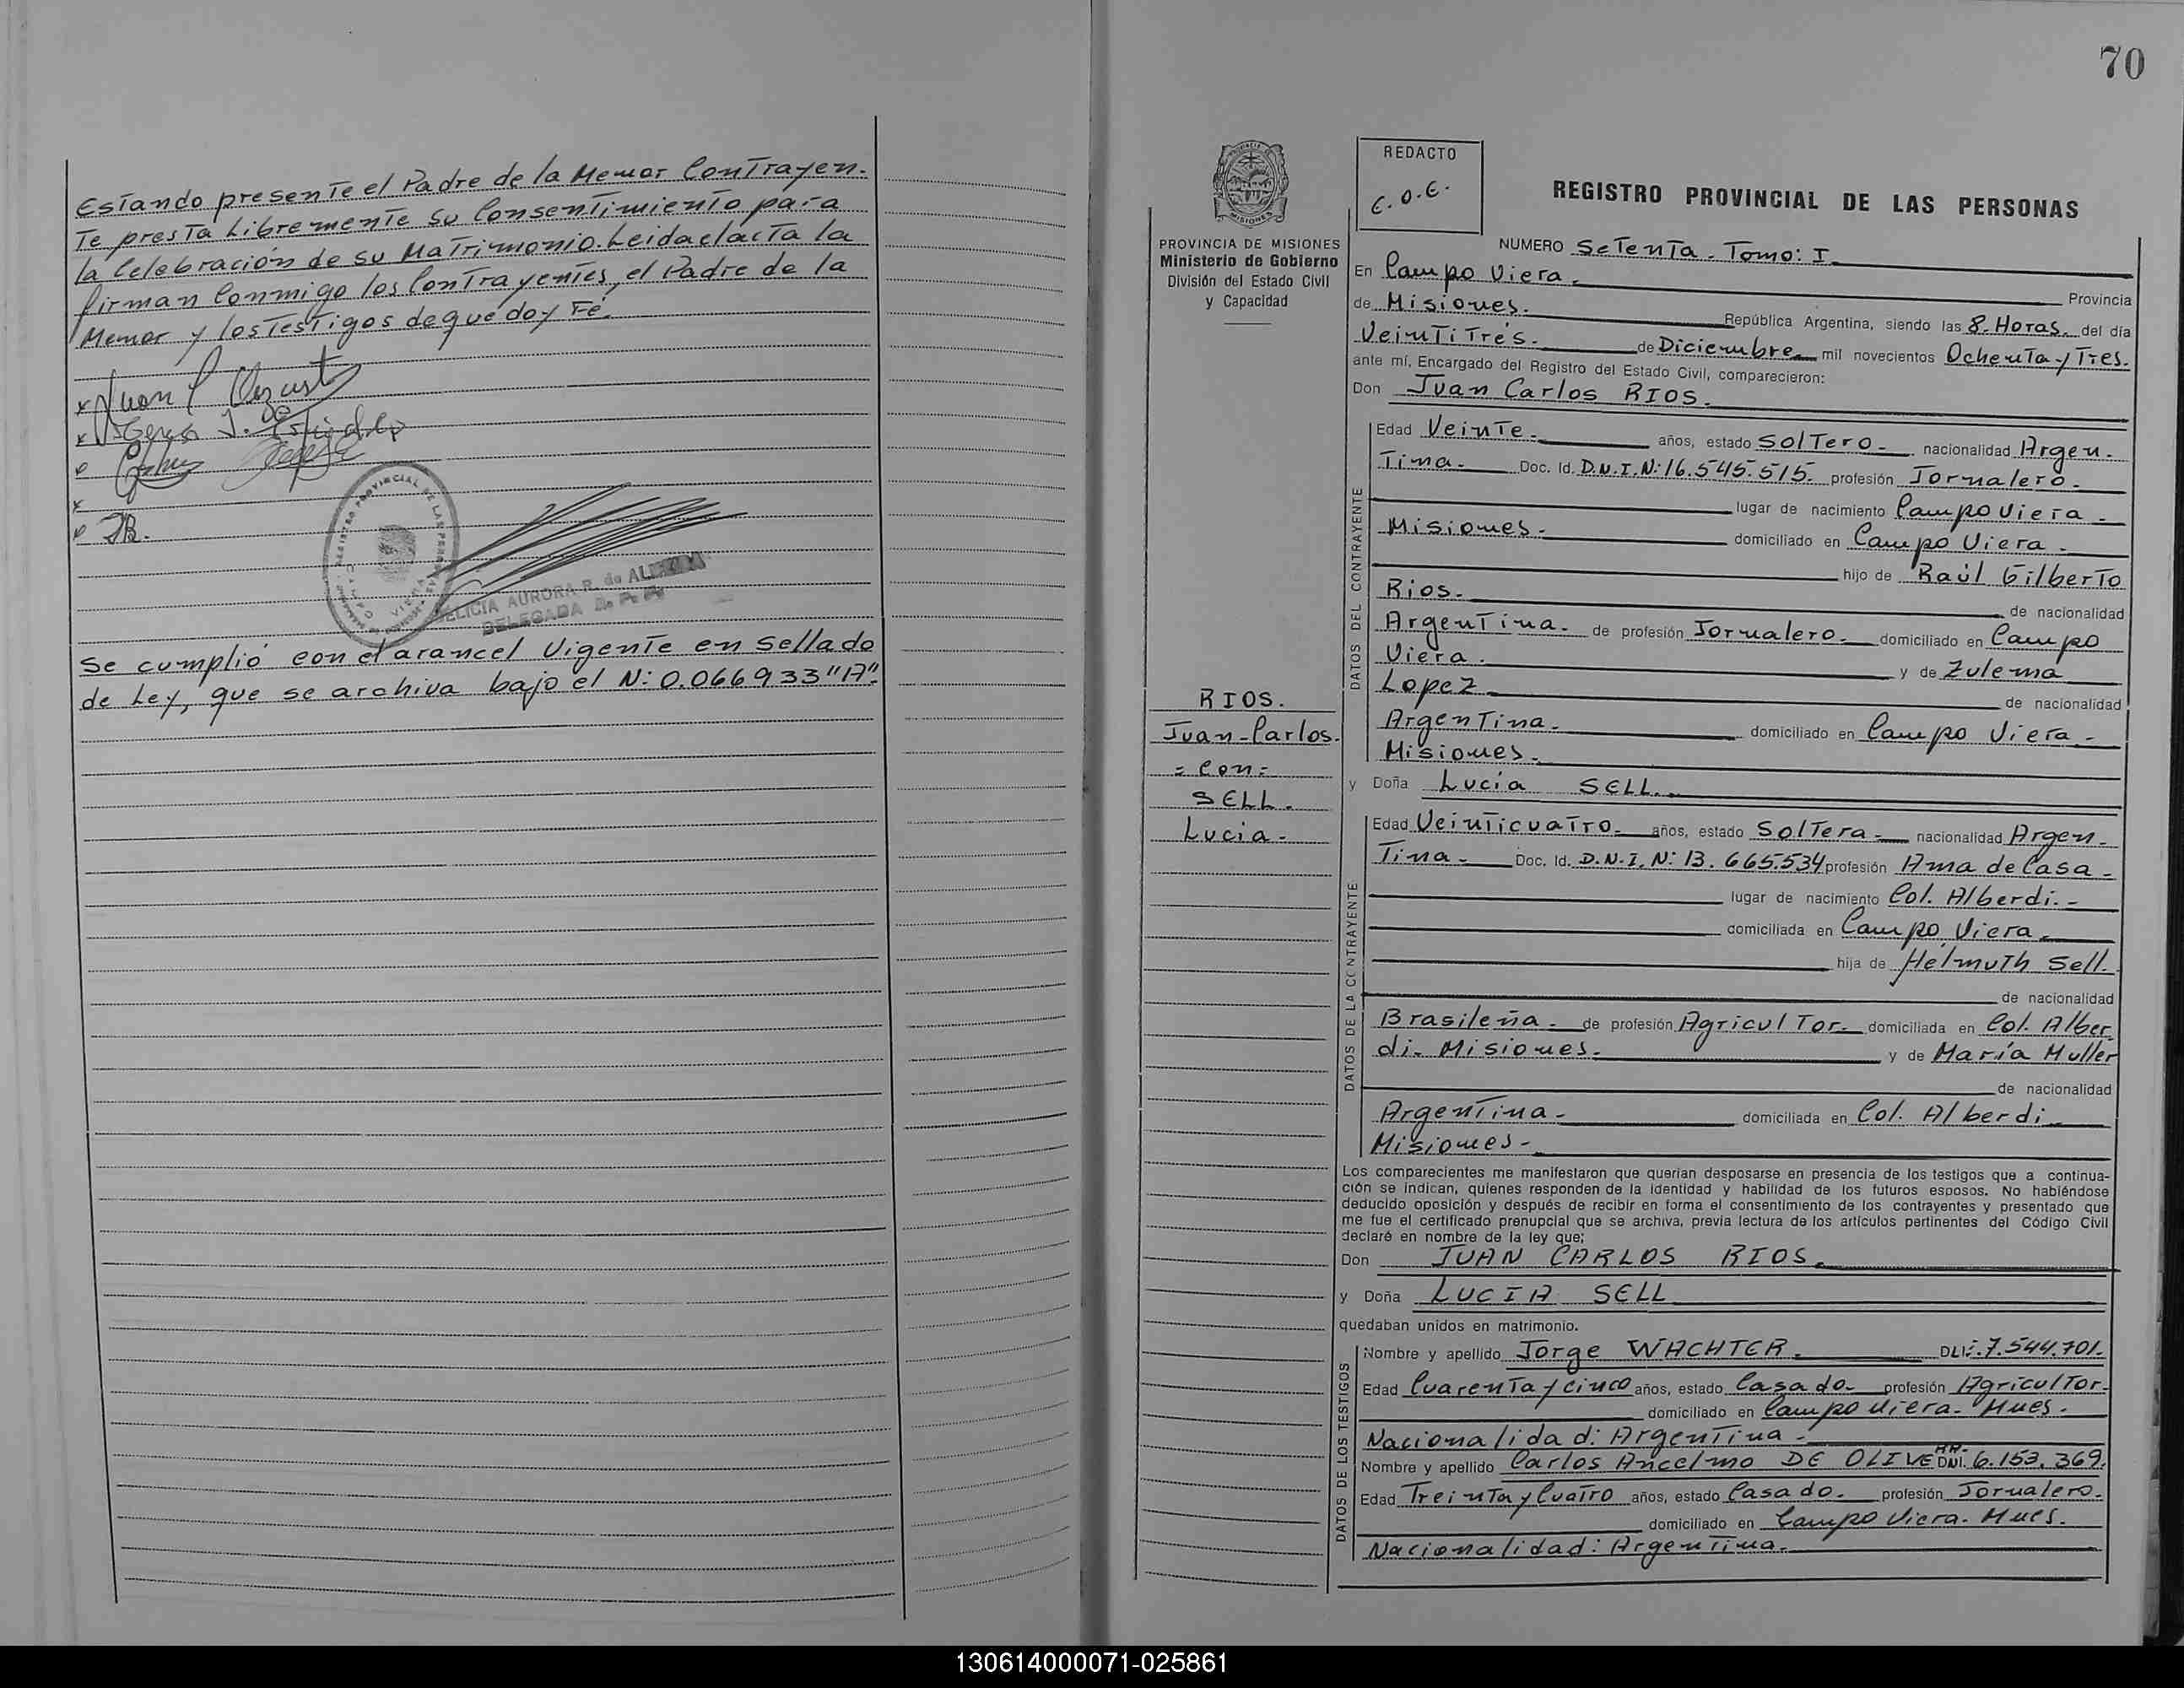 Estando presente el Padre de la Menor Contrayen-
Te presTa Libremente su Consentimiento para
la Celebración de su Matrimonio. Leida el acta la
firman Conmigo los Contrayentes, el Padre de la
Menor y los Testigos de que doy Fé.
x Juan
x J. de
x
x
x JB.
REGISTRO PROVINCIAL DE LAS PERSONAS
CAMPO VIERA
MISIONES
AURORA R. de
DELEGADA R. P. P.
Se cumplió con el arancel Vigente en Sellado
de Ley, que se archiva bajo el N: 0.066933 "A".-
70
PROVINCIA DE MISIONES
Ministerio de Gobierno
División del Estado Civil
y Capacidad
RIOS.
Juan-Carlos.
= Con =
SELL.
Lucia-
REDACTO
C.O.E.
REGISTRO PROVINCIAL DE LAS PERSONAS
NUMERO SeTenTa. Tomo: I
En Campo Viera. Provincia
de Misiones. República Argentina, siendo las 8. Horas. del día
VeintiTrés. de Diciembre mil novecientos OchenTa y Tres.
ante mí, Encargado del Registro del Estado Civil, comparecieron:
Don Juan Carlos RIOS.
DATOS DEL CONTRAYENTE
Edad VeinTe. años, estado SolTero- nacionalidad Argen-
Tina- Doc. Id. D.N.I. N: 16.545.515. profesión Jornalero-
lugar de nacimiento Campo Viera-
Misiones- domiciliado en Campo Viera.
hijo de Raúl GilberTo
Rios. de nacionalidad
ArgenTina- de profesión Jornalero- domiciliado en Campo
Viera. y de Zulema
Lopez de nacionalidad
ArgenTina. domiciliado en Campo Viera-
Misiones.
y Doña Lucia SELL.
DATOS DE LA CONTRAYENTE
Edad VeinTicuaTro- años, estado SolTera- nacionalidad Argen-
Tina- Doc. Id. D.N.I. N: 13.665.534 profesión Ama de Casa-
lugar de nacimiento Col. Alberdi.-
domiciliada en Campo Viera
hija de HelmuTh Sell.
de nacionalidad
Brasileña- de profesión AgriculTor- domiciliada en Col. Alber
di- Misiones. y de María Muller
de nacionalidad
ArgenTina- domiciliada en Col. Alberdi
Misiones-
Los comparecientes me manifestaron que querían desposarse en presencia de los testigos que a continua-
ción se indican, quienes responden de la identidad y habilidad de los futuros esposos. No habiéndose
deducido oposición y después de recibir en forma el consentimiento de los contrayentes y presentado que
me fue el certificado prenupcial que se archiva, previa lectura de los artículos pertinentes del Código Civil
declaré en nombre de la ley que;
Don JUAN CARLOS RIOS.
y Doña LUCIA SELL
quedaban unidos en matrimonio.
DATOS DE LOS TESTIGOS
Nombre y apellido Jorge WACHTER. 7.544.701.
Edad CuarenTa y cinco años, estado Casado- profesión AgriculTor-
domiciliado en Campo Viera. Mnes.
Nacionalidad: ArgenTina-
Nombre y apellido Carlos Ancelmo DE OLIVE DNI. 6.153.369.
Edad TreinTa y CuaTro años, estado Casado. profesión Jornalero.
domiciliado en Campo Viera. Mnes.
Nacionalidad: ArgenTina.
130614000071-025861